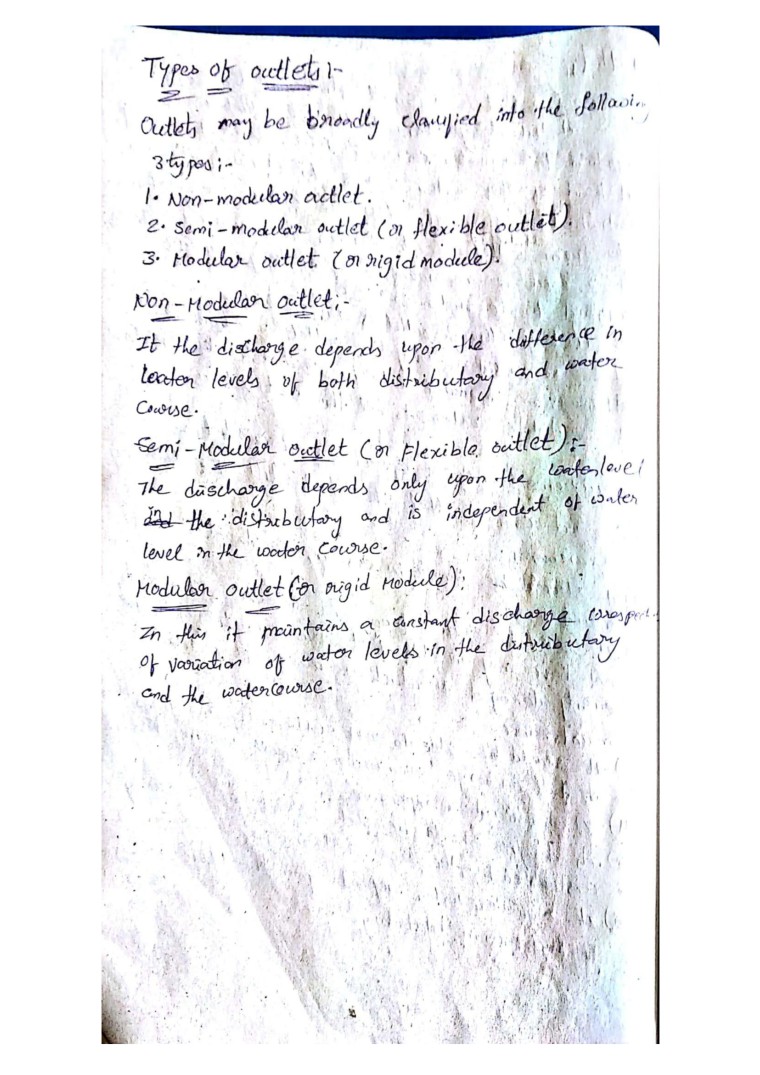 Types of outlets :-
Outlets may be broadly classified into the
3 types :-
1. Non-modular outlet.
2. Semi-modular outlet (or flexible outlet).
3. Modular outlet (or rigid module).
Non-Modular outlet :-
It the discharge depends upon the difference in
water levels of both distributary and water
course.
Semi-Modular outlet (or Flexible outlet) :-
The discharge depends only upon the water level
the distributary and is independent of water
level in the water course.
Modular outlet (or rigid Module) :
In this it maintains a constant discharge
of variation of water levels in the distributary
and the watercourse.